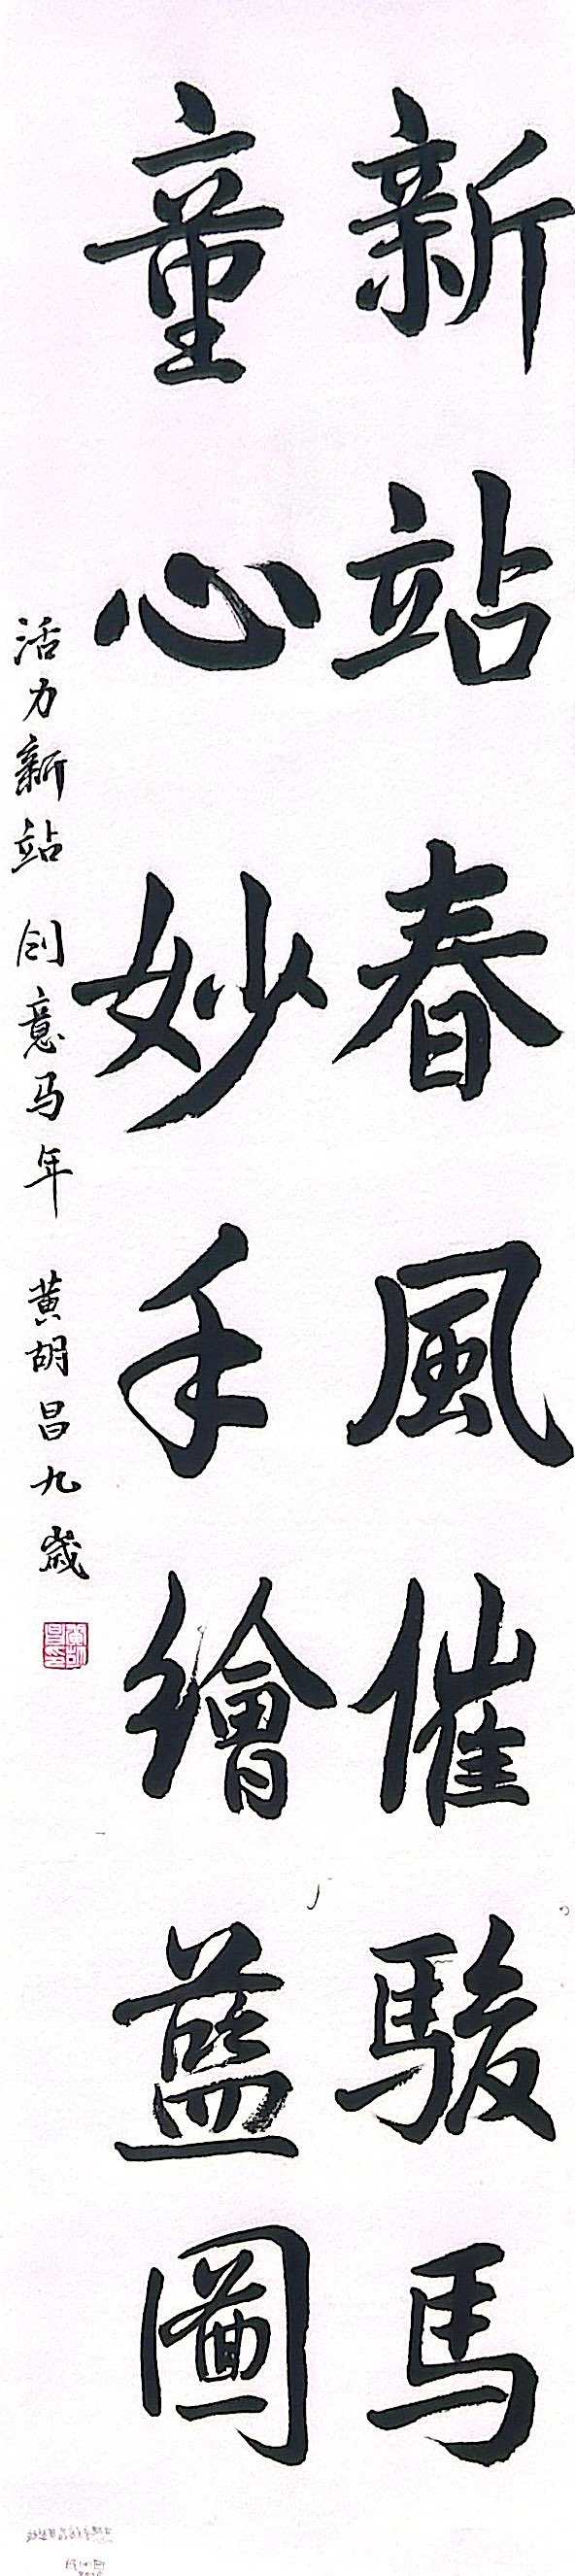 新站春風催駿馬
童心妙手繪藍圖
活力新站 创意马年 黄胡昌九歲